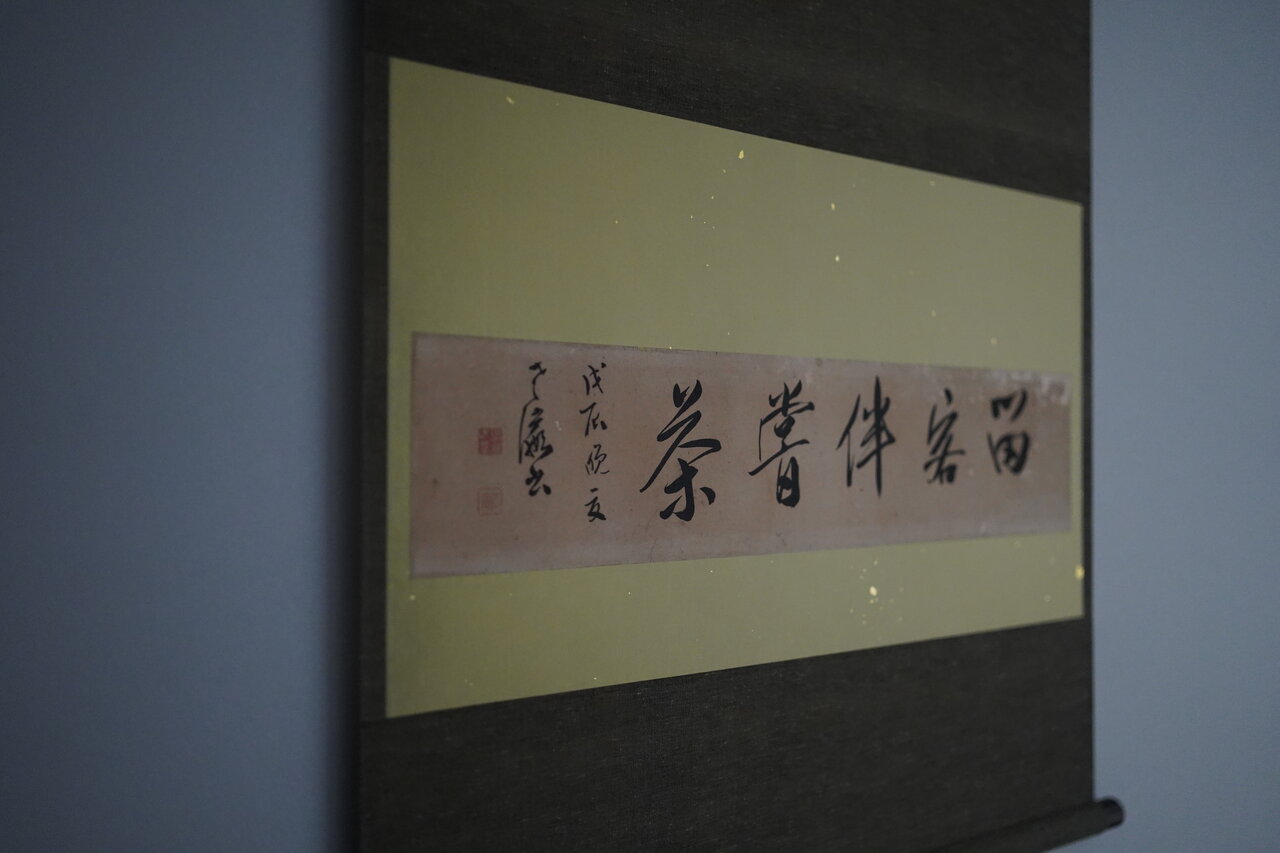 留客伴嘗茶
戊辰晚夏